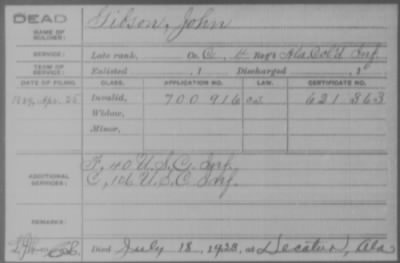 DEAD
NAME OF SOLDIER:
Gibson, John
SERVICE:
Late rank, Co. C, 4 Reg't Ala Col'd Inf.
TERM OF SERVICE:
Enlisted , 1 Discharged , 1
DATE OF FILING. CLASS. APPLICATION NO. LAW. CERTIFICATE NO.
Apr. 25 Invalid, 700 916 621 363
Widow,
Minor,
ADDITIONAL SERVICES:
F, 40 U.S.C. Inf.
C, 106 U.S.C. Inf.
REMARKS:
Died July 18, 1928, at Decatur, Ala